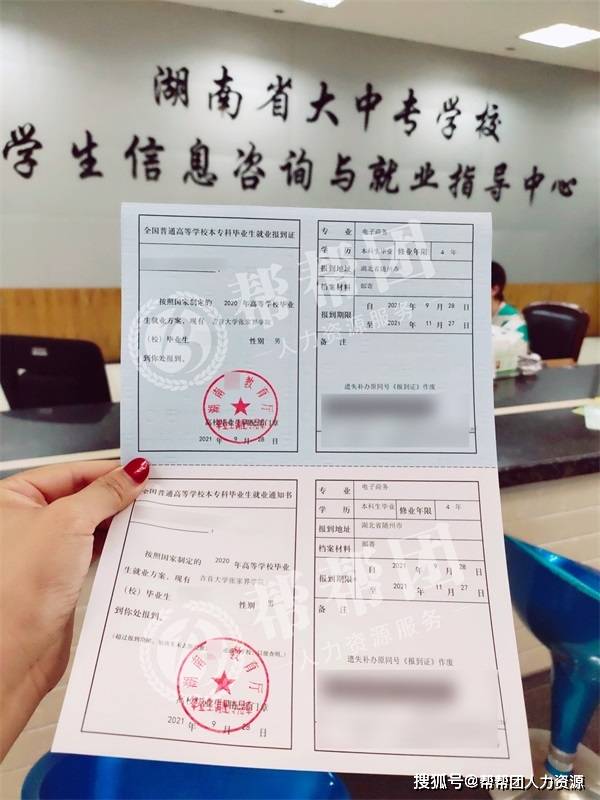 湖南省大中专学校
学生信息咨询与就业指导中心
全国普通高等学校本专科毕业生就业报到证
按照国家制定的 2020 年高等学校毕业
生就业方案，现有 吉首大学张家界学院
（校）毕业生 性别 男
到你处报到。
湖南教育厅
2021 年 9 月 28 日
专业 电子商务
学历 本科生毕业 修业年限 4 年
报到地址 湖北省随州市
档案材料 邮寄
报到期限 自 2021 年 9 月 28 日
至 2021 年 11 月 27 日
备注
遗失补办原同号《报到证》作废
全国普通高等学校本专科毕业生就业通知书
按照国家制定的 2020 年高等学校毕业
生就业方案，现有 吉首大学张家界学院
（校）毕业生 性别 男
到你处报到。
湖南教育厅
2021 年 9 月 28 日
专业 电子商务
学历 本科生毕业 修业年限 4 年
报到地址 湖北省随州市
档案材料 邮寄
报到期限 自 2021 年 9 月 28 日
至 2021 年 11 月 27 日
备注
遗失补办原同号《报到证》作废
帮帮团
人力资源服务
帮帮团
人力资源服务
搜狐号@帮帮团人力资源